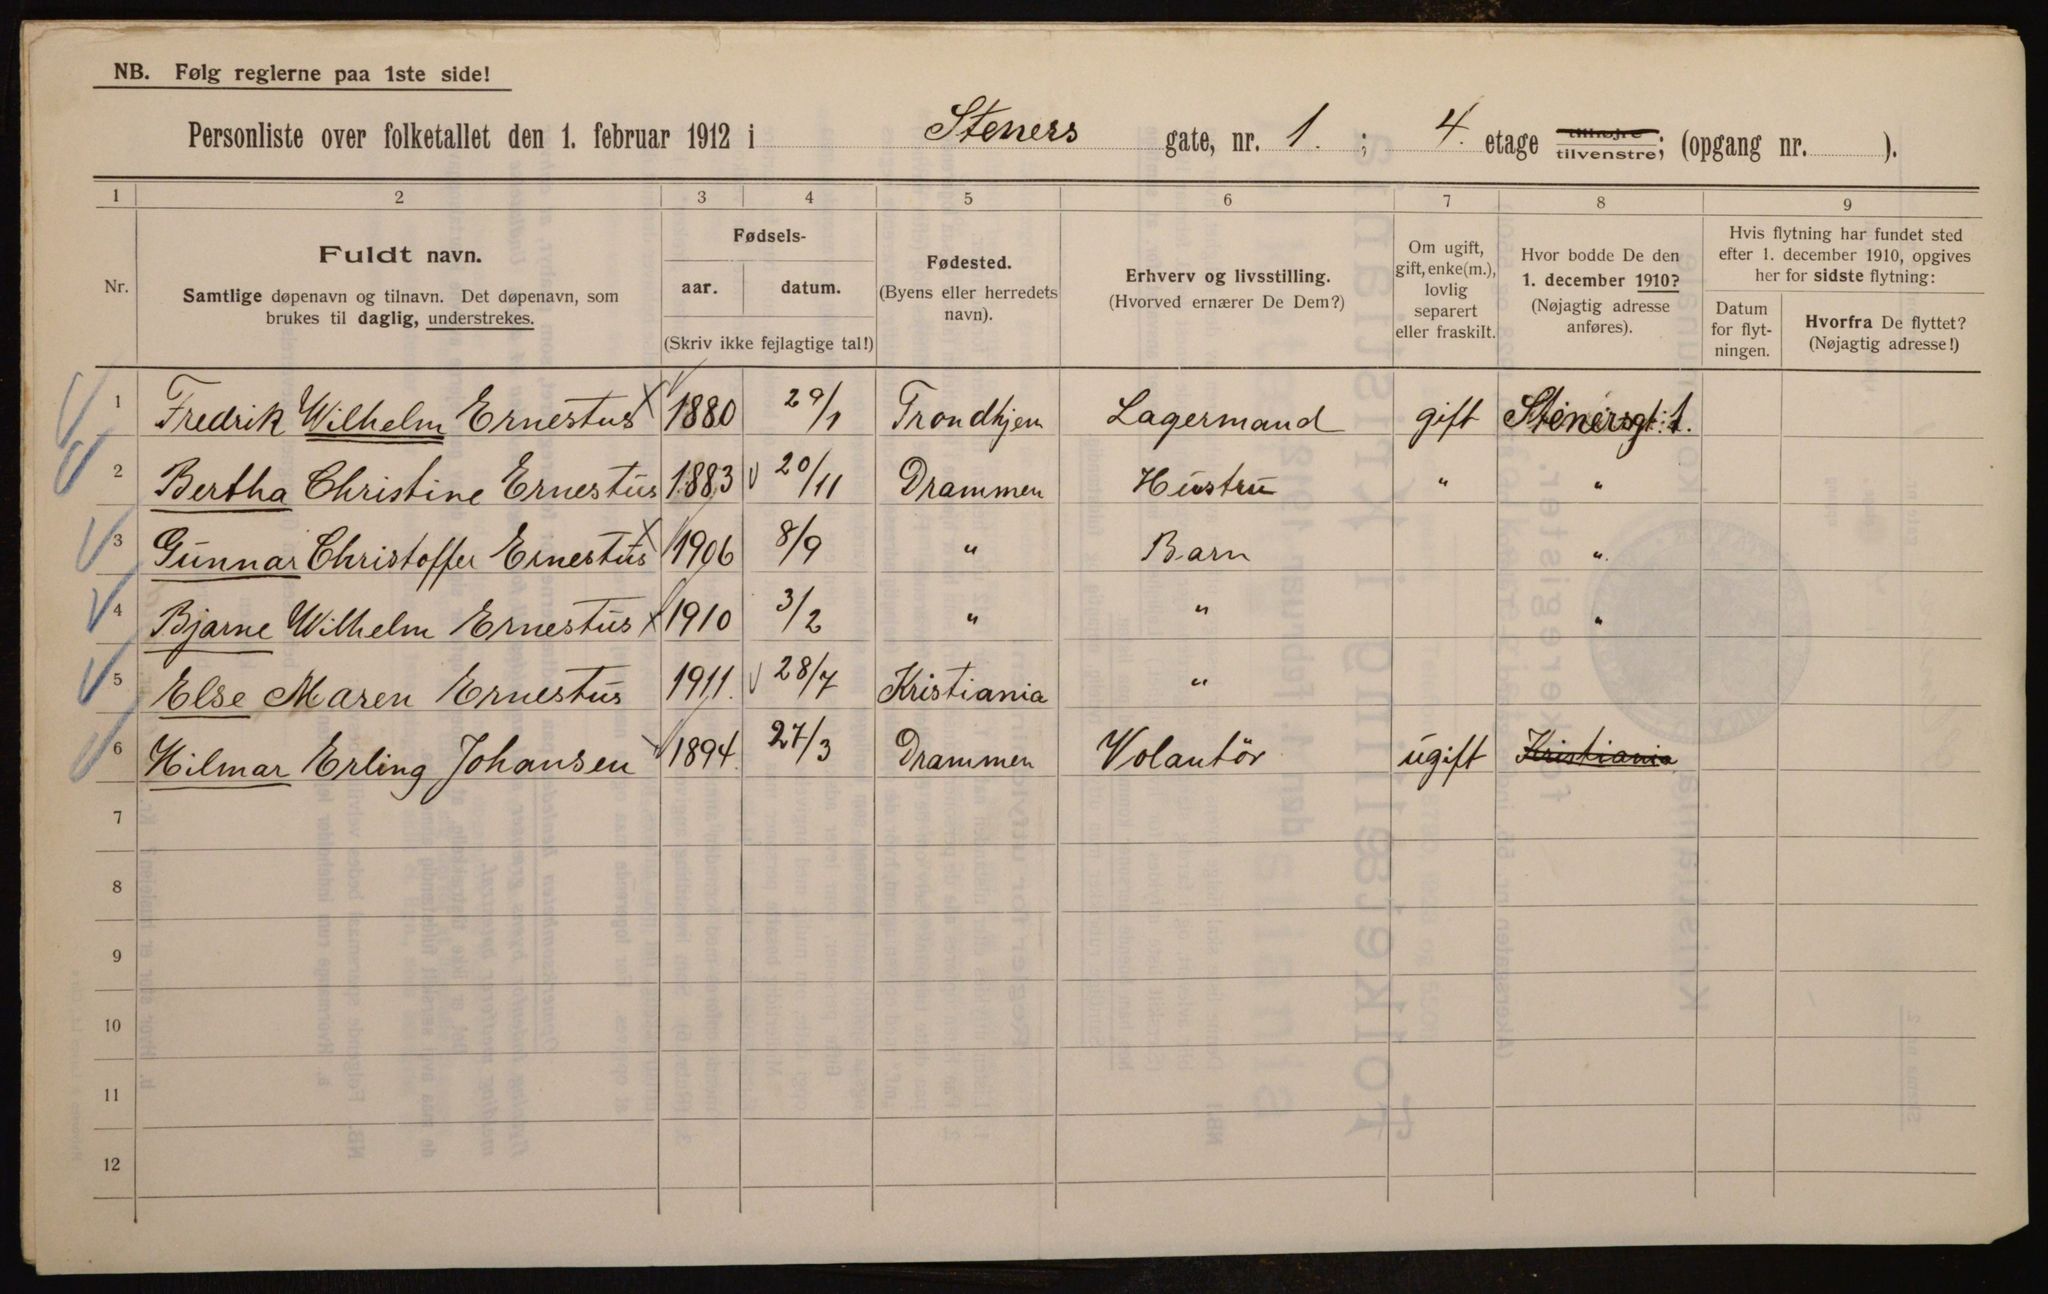 NB. Følg reglerne paa 1ste side!
Personliste over folketallet den 1. februar 1912 i Steners gate, nr. 1. ; 4. etage tilhøjre tilvenstre; (opgang nr. ).
1 2 3 4 5 6 7 8 9
Nr.
Fuldt navn.
Samtlige døpenavn og tilnavn. Det døpenavn, som
brukes til daglig, understrekes.
Fødsels-
aar. datum.
(Skriv ikke fejlagtige tal!)
Fødested.
(Byens eller herredets
navn).
Erhverv og livsstilling.
(Hvorved ernærer De Dem?)
Om ugift,
gift, enke(m.),
lovlig
separert
eller fraskilt.
Hvor bodde De den
1. december 1910?
(Nøjagtig adresse
anføres).
Hvis flytning har fundet sted
efter 1. december 1910, opgives
her for sidste flytning:
Datum
for flyt-
ningen.
Hvorfra De flyttet?
(Nøjagtig adresse!)
1 Fredrik Wilhelm Ernestus 1880 29/1 Trondhjem Lagermand gift Stenersgt. 1.
2 Bertha Christine Ernestus 1883 20/11 Drammen Hustru " "
3 Gunnar Christoffer Ernestus 1906 8/9 " Barn "
4 Bjarne Wilhelm Ernestus 1910 3/2 " " "
5 Else Maren Ernestus 1911. 28/7 Kristiania "
6 Hilmar Erling Johansen 1894. 27/3 Drammen Volantör ugift Kristiania
7
8
9
10
11
12